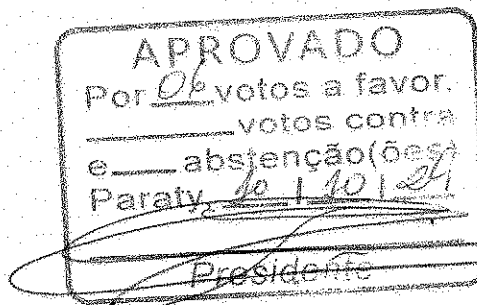 APROVADO
Por 06 votos a favor.
______ votos contra
e ____ abstenção(ões)
Paraty, 10 / 10 / 24
Presidente